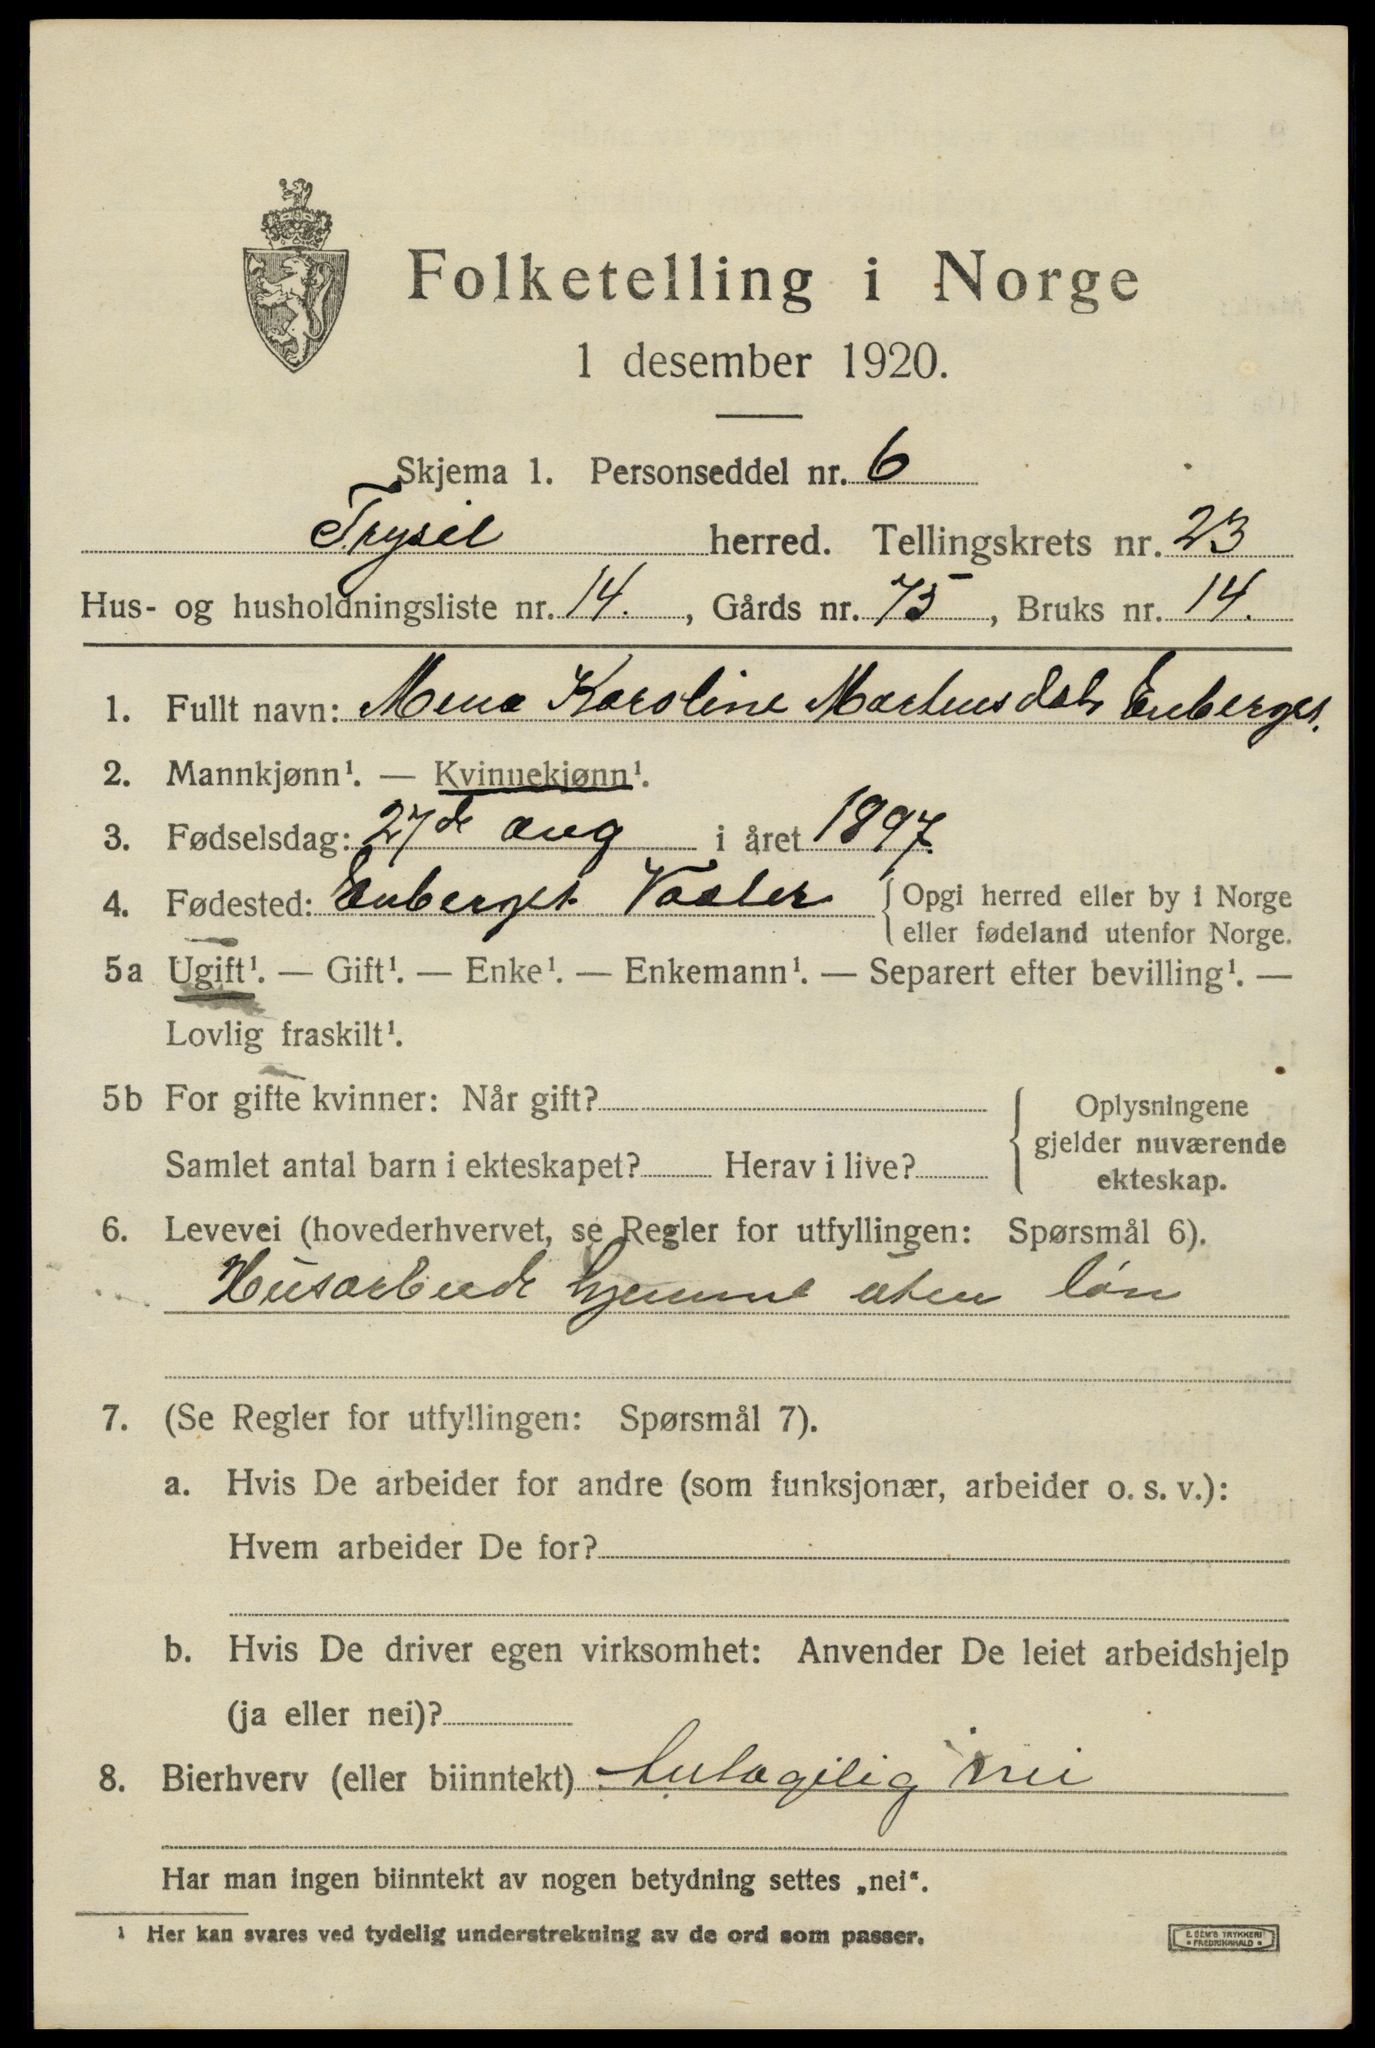 Folketelling i Norge
1 desember 1920.
Skjema 1. Personseddel nr. 6
Trysil herred. Tellingskrets nr. 23
Hus- og husholdningsliste nr. 14. , Gårds nr. 75, Bruks nr. 14.
1. Fullt navn: Mena Karoline Martensdatr Enberget.
2. Mannkjønn¹. — Kvinnekjønn¹.
3. Fødselsdag: 27de aug i året 1897.
4. Fødested: Enberget Vaaler { Opgi herred eller by i Norge
eller fødeland utenfor Norge.
5a Ugift¹. — Gift¹. — Enke¹. — Enkemann¹. — Separert efter bevilling¹. —
Lovlig fraskilt¹.
5b For gifte kvinner: Når gift?
Samlet antal barn i ekteskapet? Herav i live?
Oplysningene
gjelder nuværende
ekteskap.
6. Levevei (hovederhvervet, se Regler for utfyllingen: Spørsmål 6).
Husarbeide hjemme uten løn
7. (Se Regler for utfyllingen: Spørsmål 7).
a. Hvis De arbeider for andre (som funksjonær, arbeider o. s. v.):
Hvem arbeider De for?
b. Hvis De driver egen virksomhet: Anvender De leiet arbeidshjelp
(ja eller nei)?
8. Bierhverv (eller biinntekt) nei
Har man ingen biinntekt av nogen betydning settes „nei“.
¹ Her kan svares ved tydelig understrekning av de ord som passer.
E. SEM'S TRYKKERI
• FREDRIKSHALD •